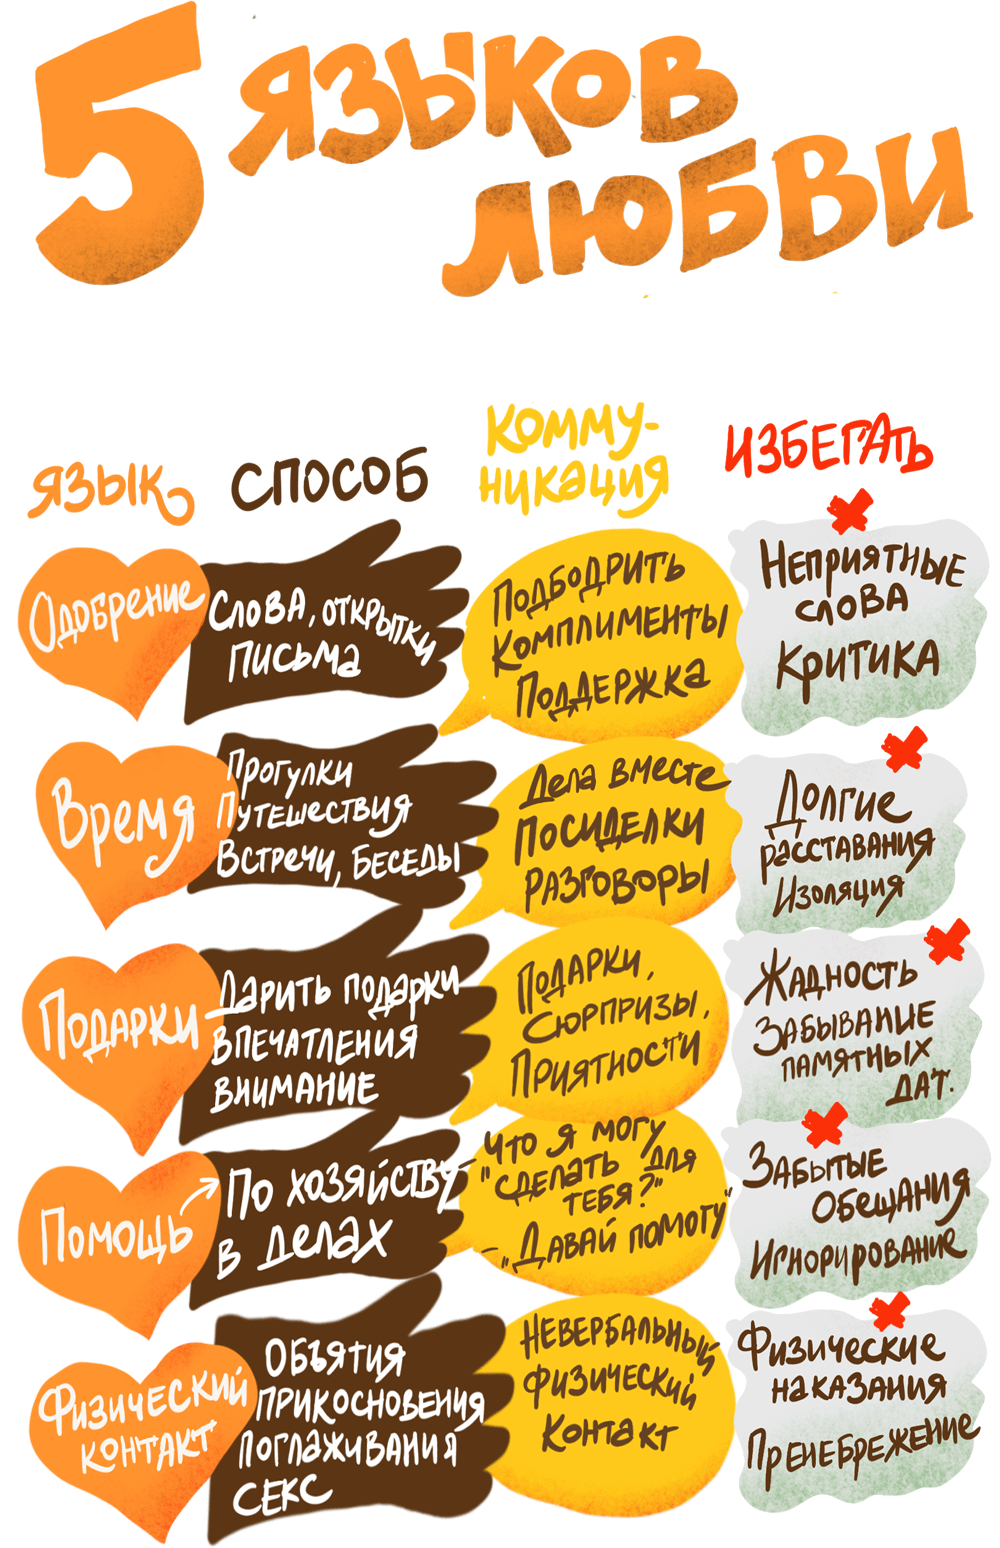 5 ЯЗЫКОВ
ЛЮБВИ
ЯЗЫК
СПОСОБ
КОММУ-
НИКАЦИЯ
ИЗБЕГАТЬ
Одобрение
Слова, открытки
письма
Подбодрить
Комплименты
Поддержка
Неприятные
слова
Критика
Время
Прогулки
Путешествия
Встречи, беседы
Дела вместе
Посиделки
Разговоры
Долгие
расставания
Изоляция
Подарки
Дарить подарки
Впечатления
Внимание
Подарки,
Сюрпризы,
Приятности
Жадность
Забывание
памятных
дат.
Помощь
По хозяйству
в делах
- Что я могу
"сделать для
тебя?"
- „Давай помогу"
Забытые
обещания
Игнорирование
Физический
контакт
Объятия
Прикосновения
Поглаживания
Секс
Невербальный
физический
контакт
Физические
наказания
Пренебрежение